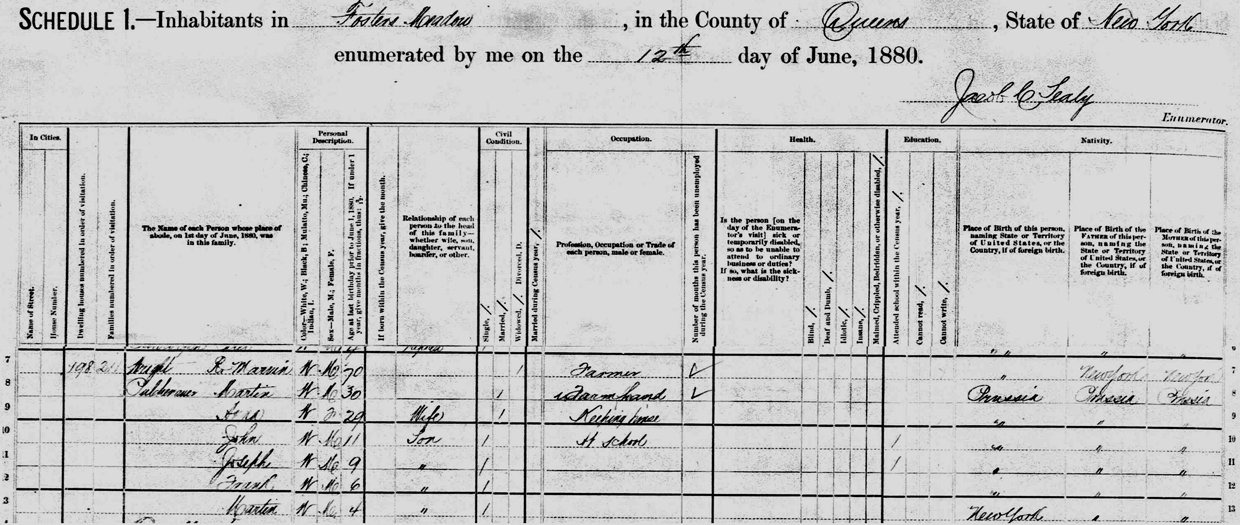 SCHEDULE 1.—Inhabitants in Fosters Meadow, in the County of Queens, State of New York
enumerated by me on the 12th day of June, 1880.
Jacob C Sealy
Enumerator.
In Cities.
Name of Street.
House Number.
Dwelling houses numbered in order of visitation.
Families numbered in order of visitation.
The Name of each Person whose place of abode, on 1st day of June, 1880, was in this family.
Personal Description.
Color—White, W.; Black, B.; Mulatto, Mu.; Chinese, C.; Indian, I.
Sex—Male, M.; Female, F.
Age at last birthday prior to June 1, 1880. If under 1 year, give months in fractions, thus:
If born within the Census year, give the month.
Relationship of each person to the head of this family—whether wife, son, daughter, servant, boarder, or other.
Civil Condition.
Single, /.
Married, /.
Widowed, /. Divorced, D.
Married during Census year, /.
Occupation.
Profession, Occupation or Trade of each person, male or female.
Number of months this person has been unemployed during the Census year.
Health.
Is the person [on the day of the Enumerator's visit] sick or temporarily disabled, so as to be unable to attend to ordinary business or duties? If so, what is the sickness or disability?
Blind, /.
Deaf and Dumb, /.
Idiotic, /.
Insane, /.
Maimed, Crippled, Bedridden, or otherwise disabled, /.
Education.
Attended school within the Census year, /.
Cannot read, /.
Cannot write, /.
Nativity.
Place of Birth of this person, naming State or Territory of United States, or the Country, if of foreign birth.
Place of Birth of the FATHER of this person, naming the State or Territory of United States, or the Country, if of foreign birth.
Place of Birth of the MOTHER of this person, naming the State or Territory of United States, or the Country, if of foreign birth.
7 198 Wright R. Marvin W M 70 / Farmer " New York New York 7
8 Martin W M 30 / Farm hand Prussia Prussia 8
9 W F 29 Wife / Keeping house " " " 9
10 John W M 11 Son / At school / " " " 10
11 Joseph W M 9 " / / " " " 11
Frank W M 6 " / " " " 12
Martin W M 4 " / New York " " 13